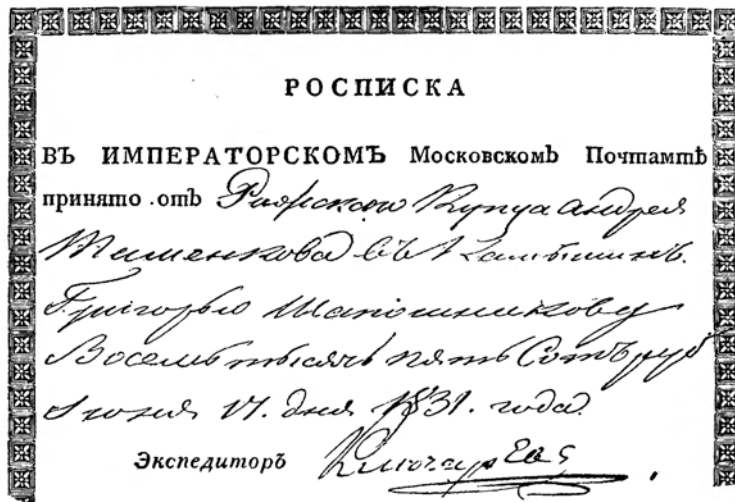 РОСПИСКА
ВЪ ИМПЕРАТОРСКОМЪ Московскомъ Почтамтѣ
принято отъ Ряжскаго Купца андрея
въ
Григорью Шапошникову
Восемь тысячь пять Сотъ руб
Июня 17. дня 1831. года.
Экспедиторъ Ключаревъ